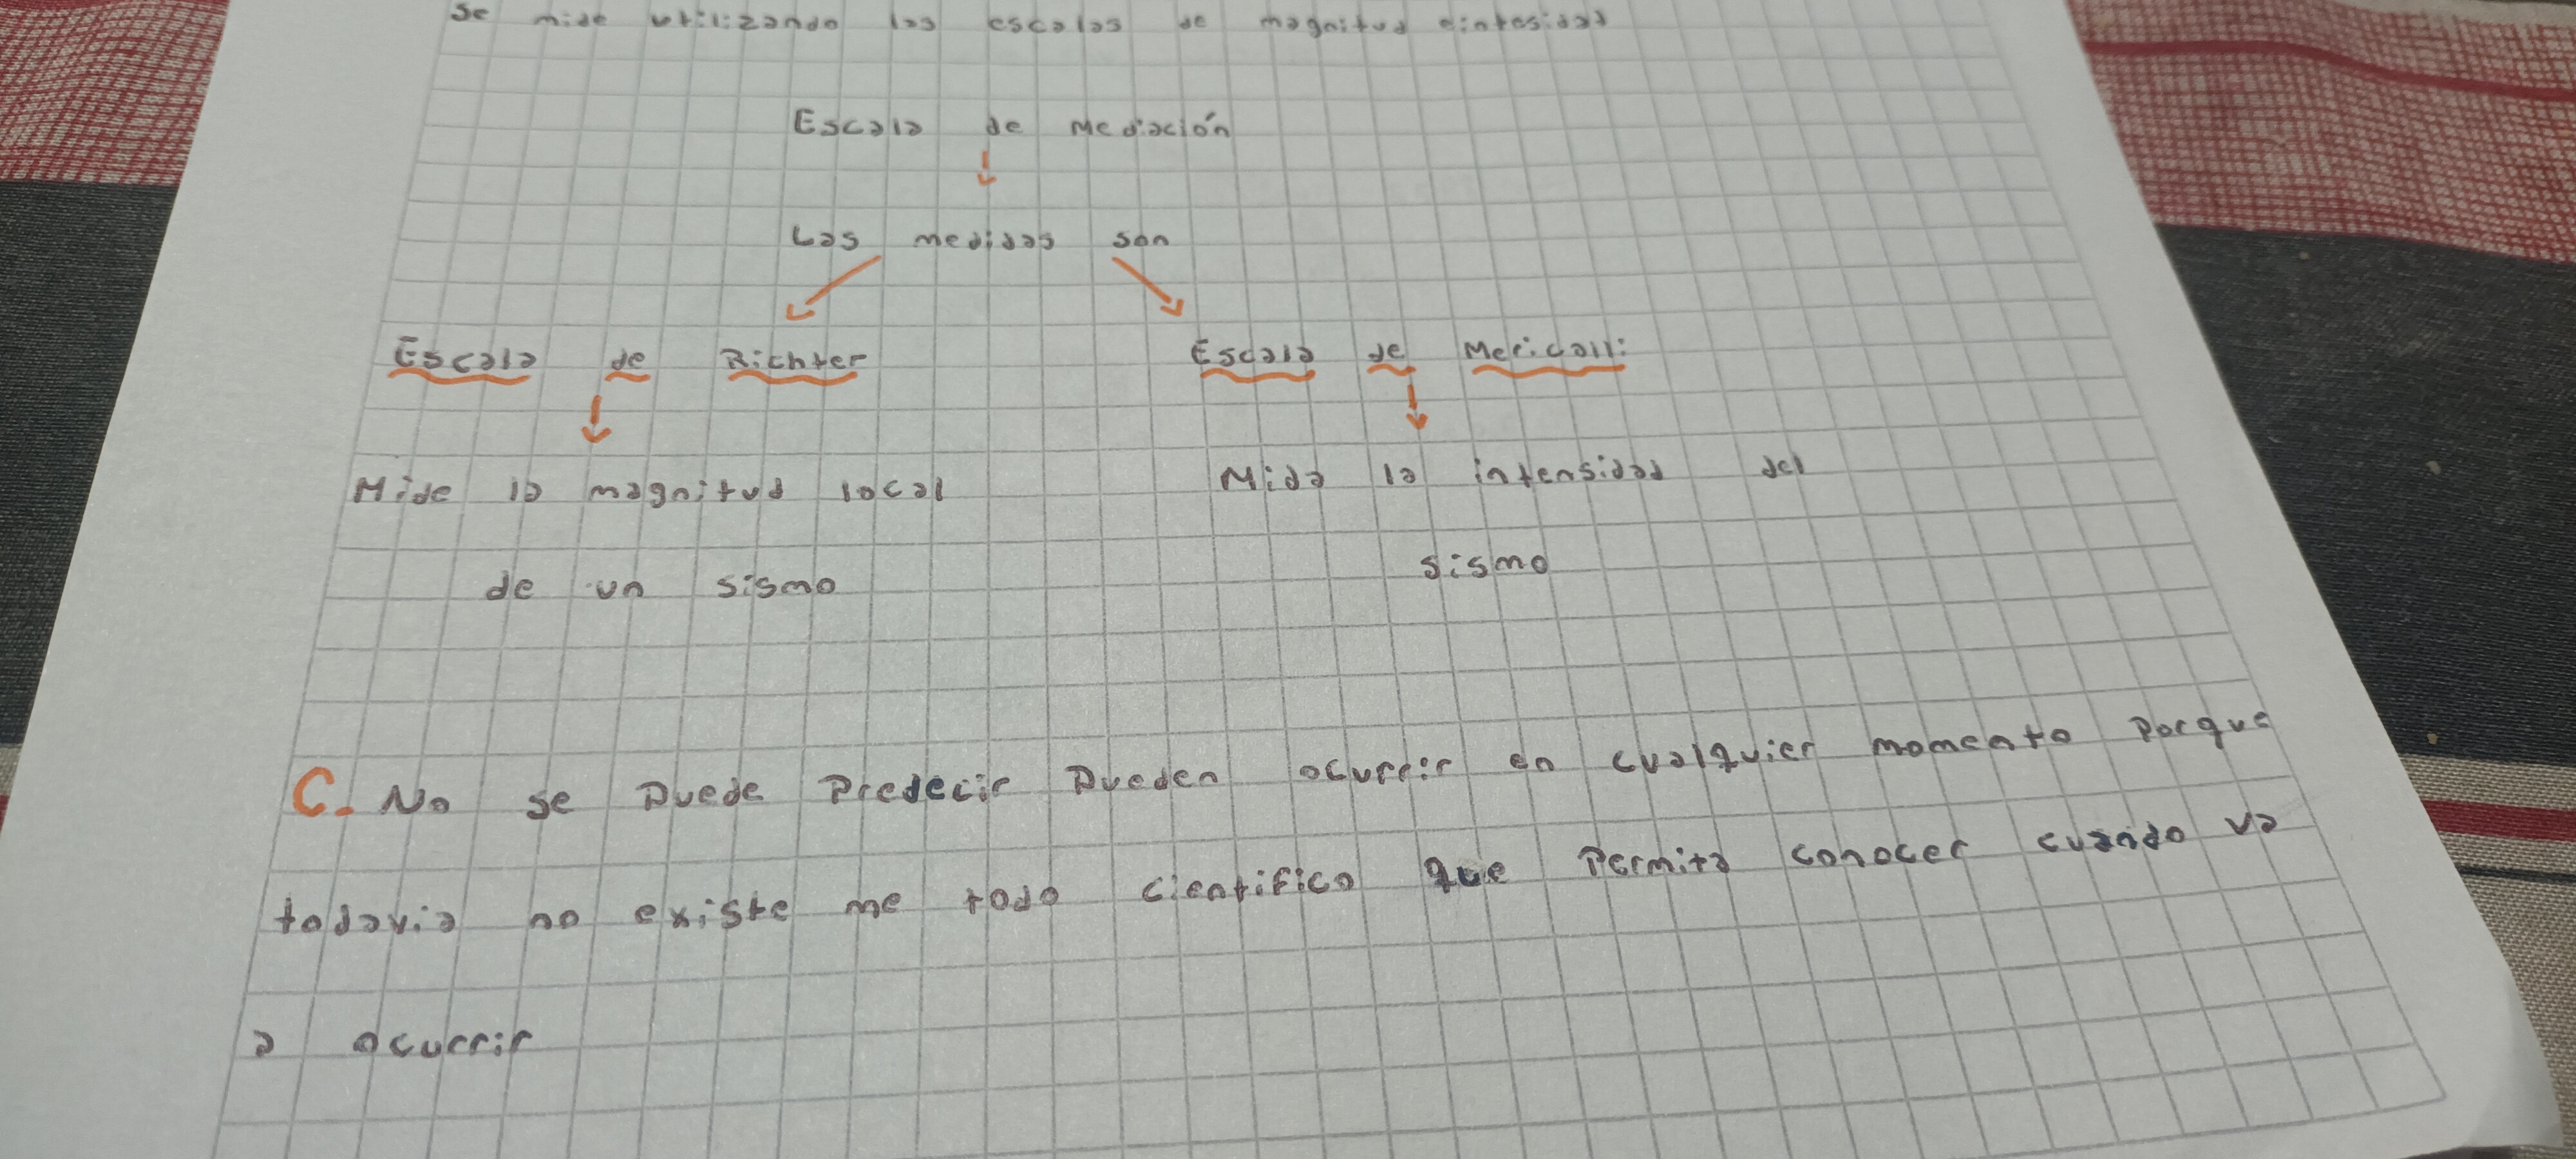 Se mide utilizando las escalas de magnitud eintesidad
Escala de Mediación
Las medidas son
Escala de Richter
Escala de Mericalli
Mide la magnitud local
de un sismo
Mida la intensidad del
sismo
C. No se puede Predecir Pueden ocurrir en cualquier momento Porque
todavia no existe me todo cientifico que Permita conocer cuando va
a ocurrir